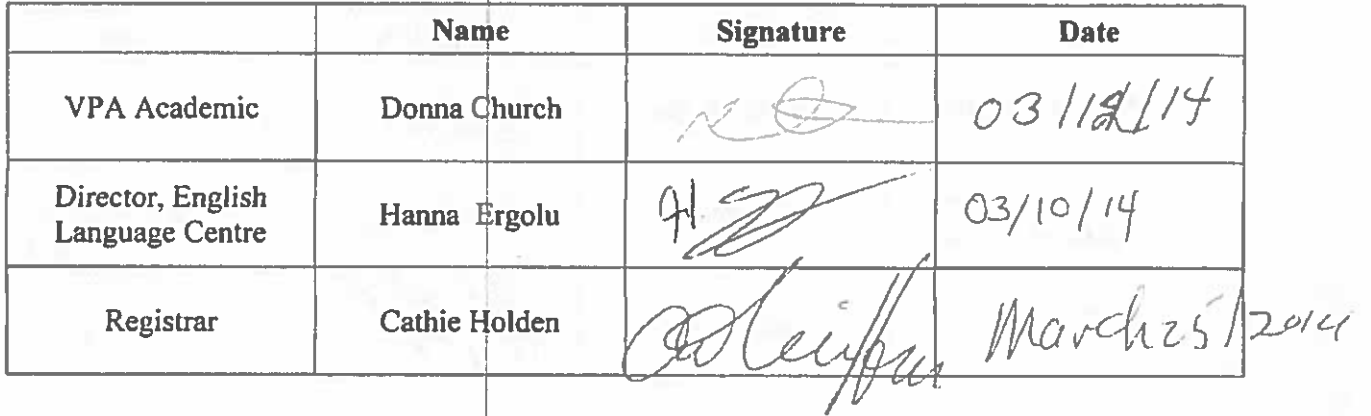 Name Signature Date
VPA Academic Donna Church
Director, English
Language Centre Hanna Ergolu 03/10/14
Registrar Cathie Holden March 25/2014